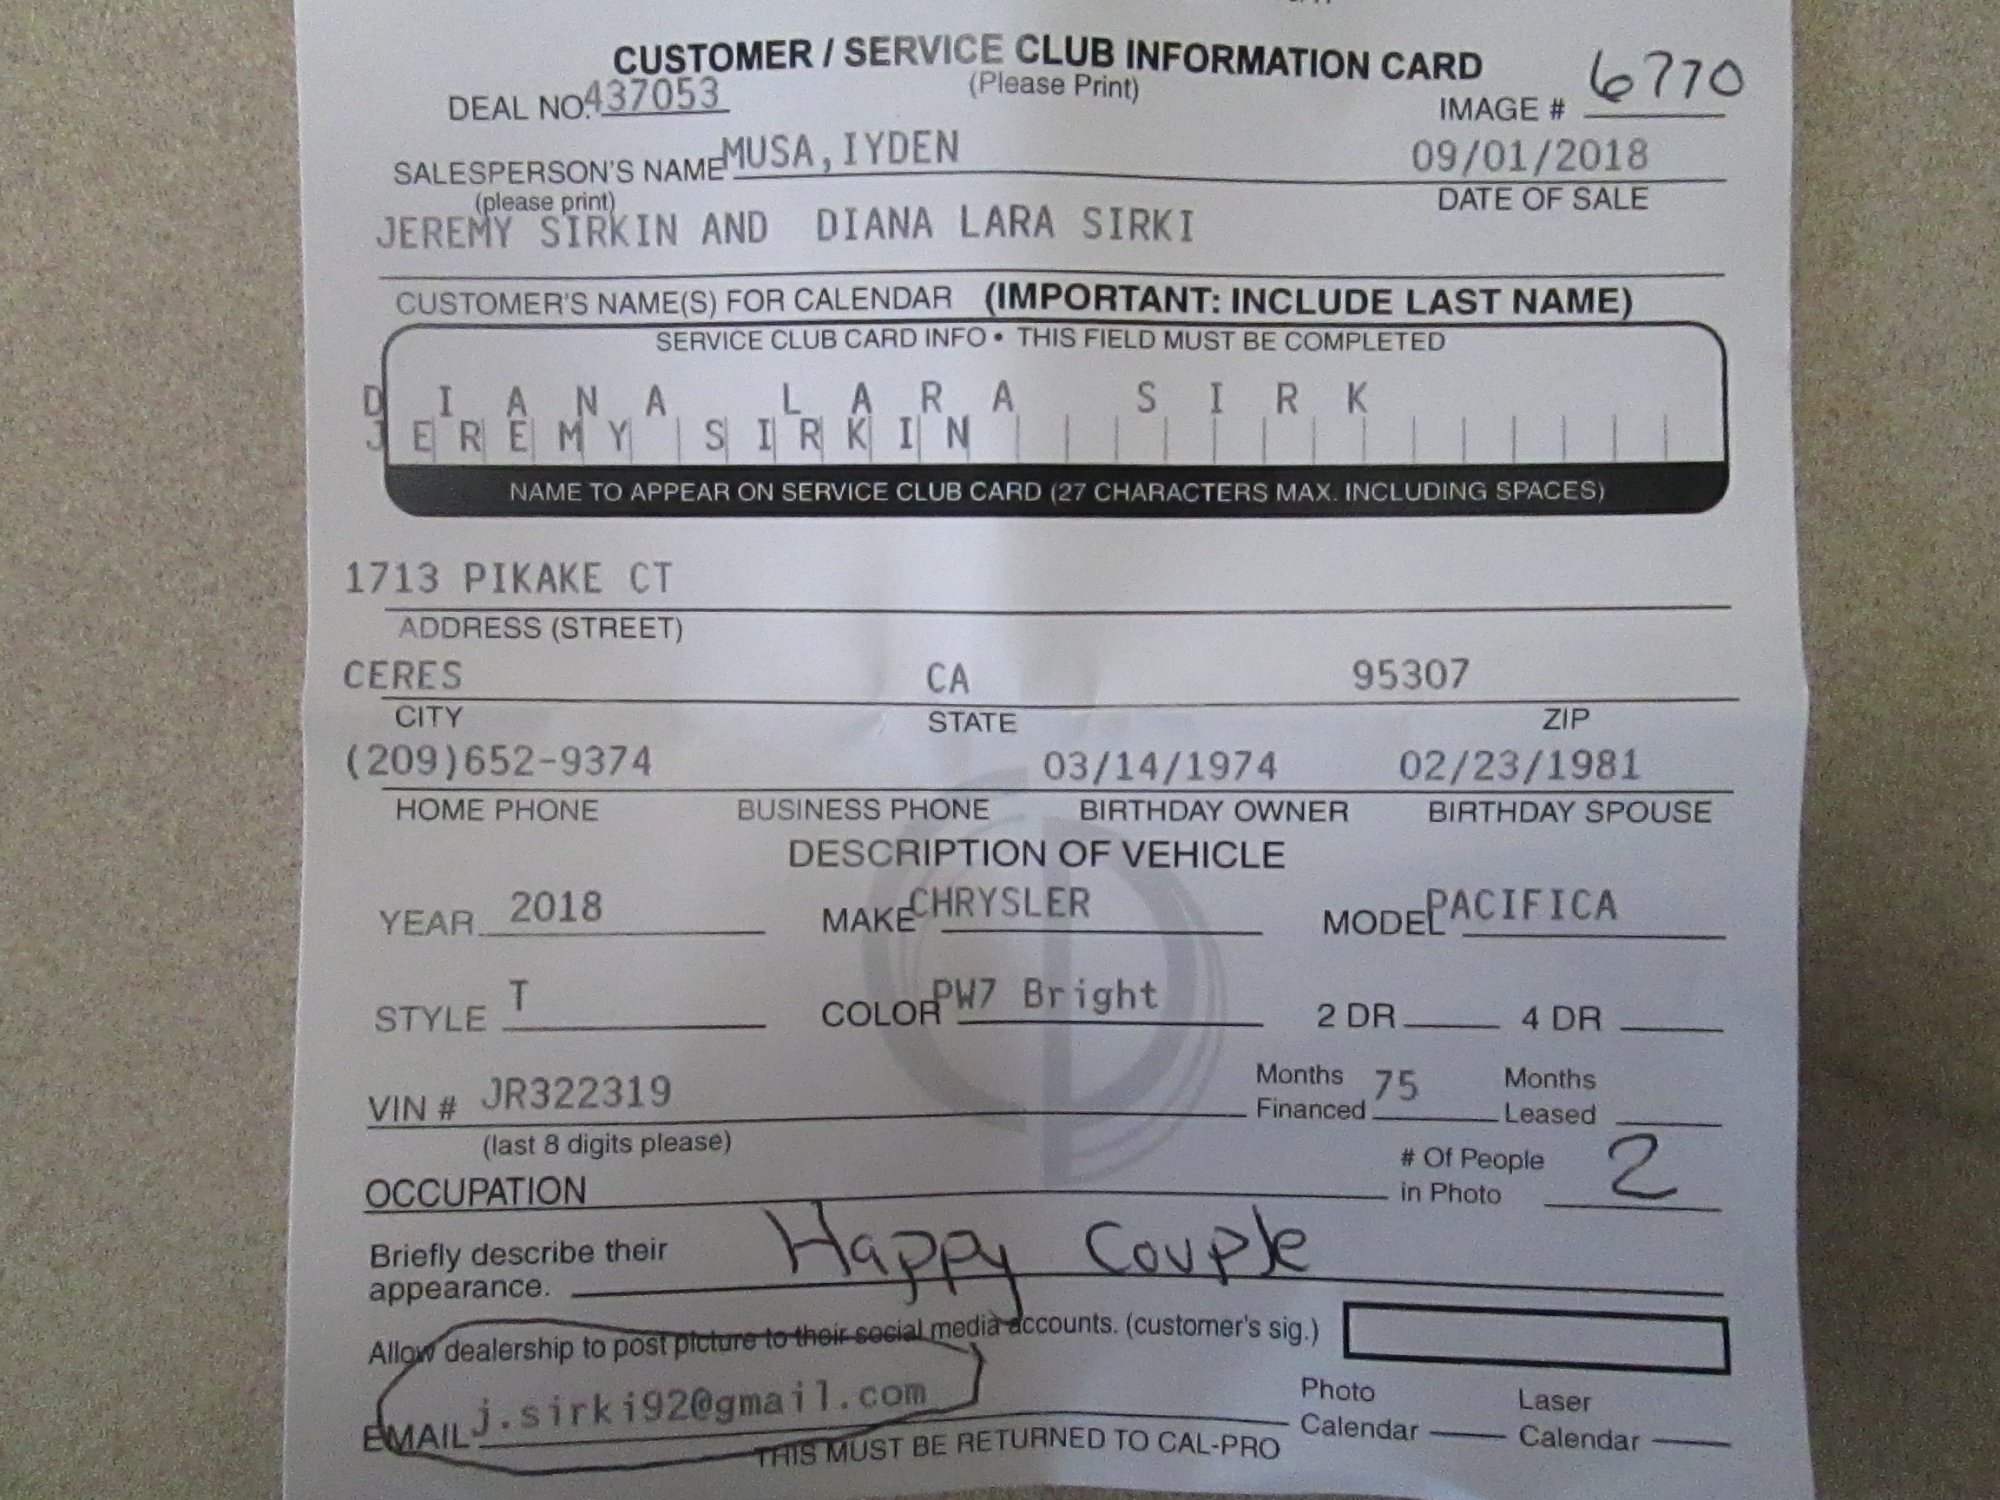 CUSTOMER / SERVICE CLUB INFORMATION CARD
(Please Print)
DEAL NO. 437053
IMAGE # 6770
SALESPERSON'S NAME MUSA, IYDEN 09/01/2018
(please print) DATE OF SALE
JEREMY SIRKIN AND DIANA LARA SIRKI
CUSTOMER'S NAME(S) FOR CALENDAR (IMPORTANT: INCLUDE LAST NAME)
SERVICE CLUB CARD INFO • THIS FIELD MUST BE COMPLETED
DIANA LARA SIRK
JEREMY SIRKIN
NAME TO APPEAR ON SERVICE CLUB CARD (27 CHARACTERS MAX. INCLUDING SPACES)
1713 PIKAKE CT
ADDRESS (STREET)
CERES CA 95307
CITY STATE ZIP
(209)652-9374 03/14/1974 02/23/1981
HOME PHONE BUSINESS PHONE BIRTHDAY OWNER BIRTHDAY SPOUSE
DESCRIPTION OF VEHICLE
YEAR 2018 MAKE CHRYSLER MODEL PACIFICA
STYLE T COLOR PW7 Bright 2 DR 4 DR
VIN # JR322319 Months Financed 75 Months Leased
(last 8 digits please)
OCCUPATION # Of People in Photo 2
Briefly describe their appearance. Happy Couple
Allow dealership to post picture to their social media accounts. (customer's sig.)
EMAIL j.sirki92@gmail.com Photo Calendar Laser Calendar
THIS MUST BE RETURNED TO CAL-PRO